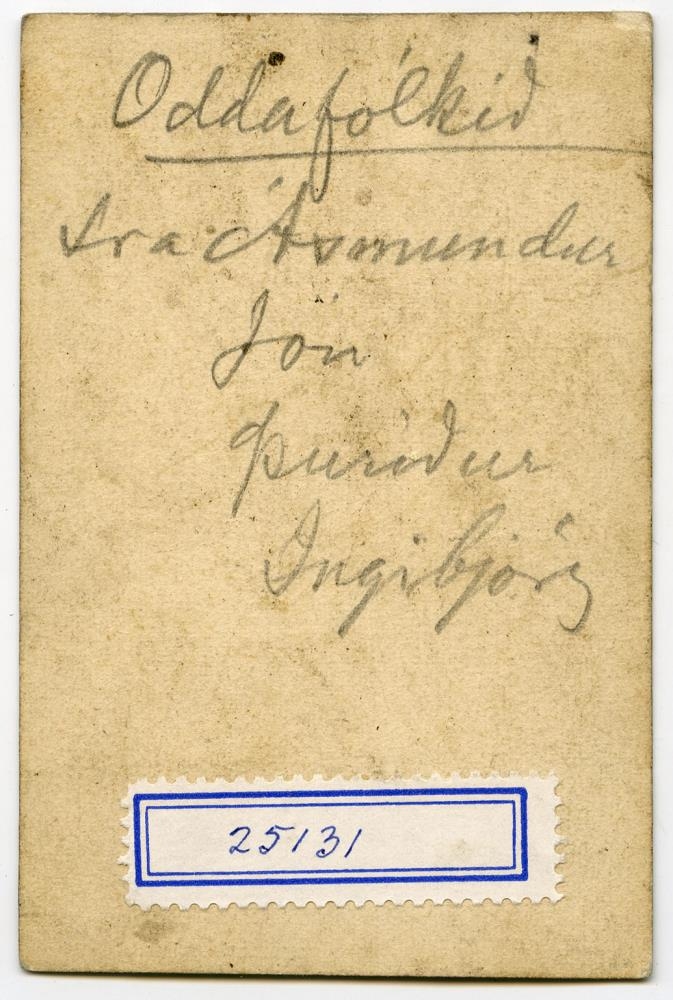 Oddafólkið
sra Ásmundur
Jón
Þuríður
Ingibjörg
25131